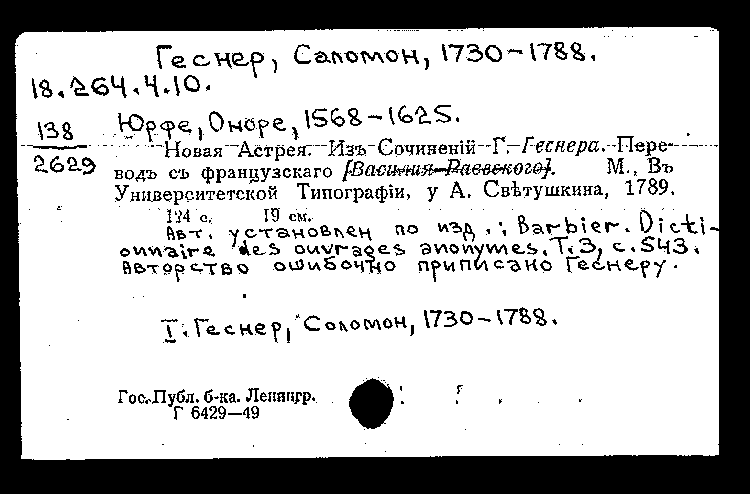 Геснер, Саломон, 1730-1788.
18.264.4.10.
138
2629
Юрфе, Оноре, 1568-1625.
Новая Астрея. Изъ Сочиненій Г. Геснера. Пере-
водъ съ французскаго [Василия Раевского]. М., Въ
Университетской Типографіи, у А. Свѣтушкина, 1789.
124 с. 19 см.
Авт. установлен по изд.: Barbier. Dicti-
onnaire des ouvrages anonymes. T.3, c.543.
Авторство ошибочно приписано Геснеру.
I. Геснер, Соломон, 1730-1788.
Гос. Публ. б-ка. Ленингр.
Г 6429—49